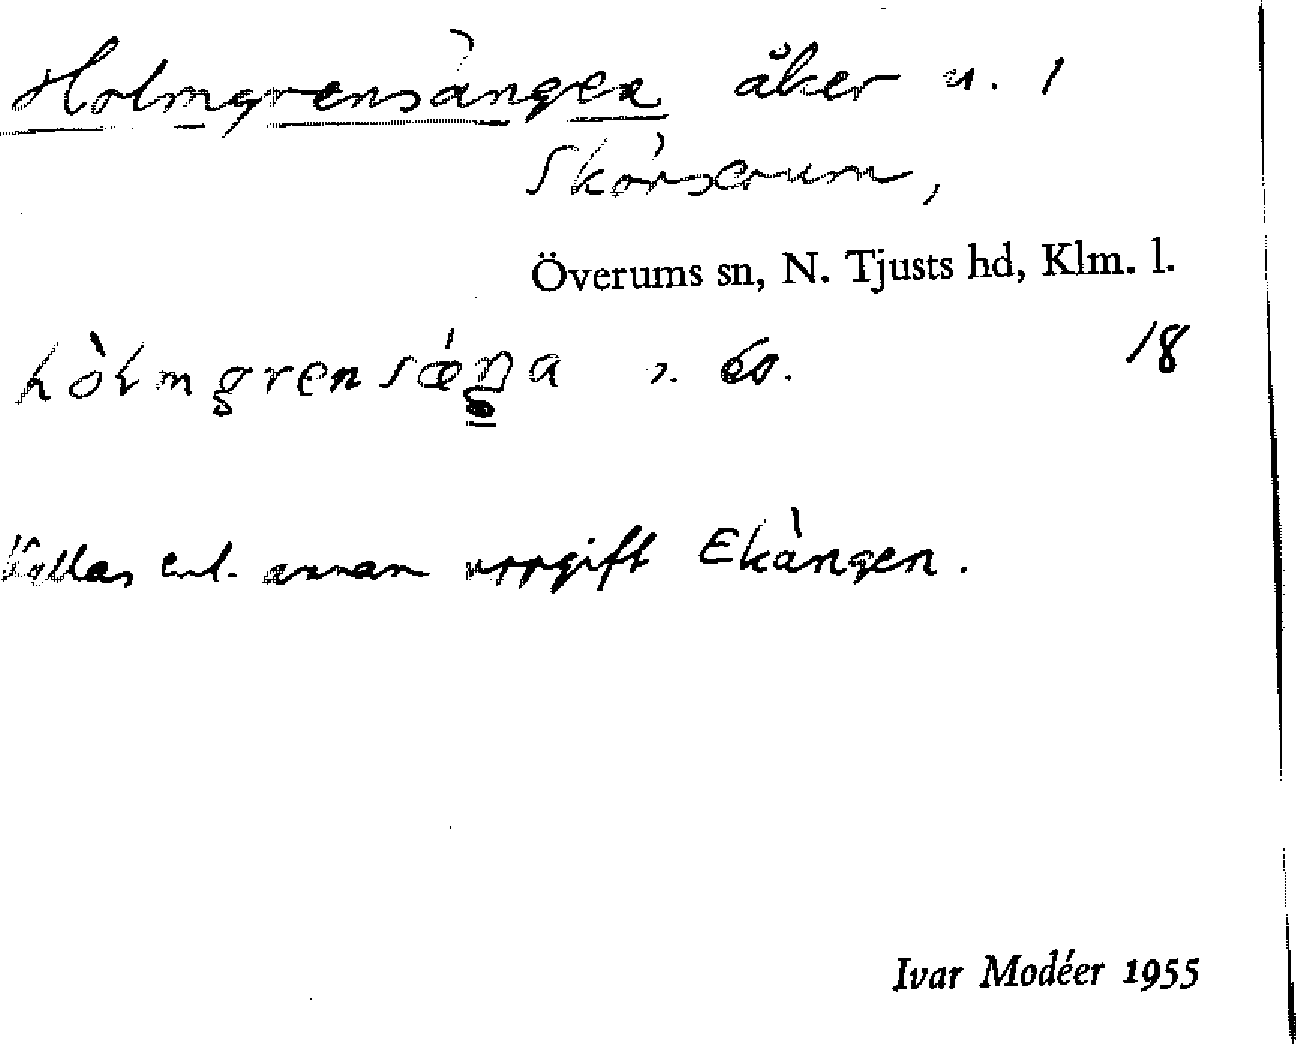 Holmgrensängen åker n. 1
Skörserum,
Överums sn, N. Tjusts hd, Klm. l.
hòlmgrensǽŋa 18
Kallas enl. annan uppgift Ekängen.
Ivar Modéer 1955